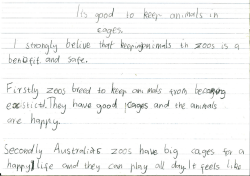 It's good to keep animals in
cages.
I strongly belive that keeping animals in zoos is a
benefit and safe.
Firstly zoos breed to keep animals from becoming
They have good cages and the animals
are happy.
Secondly Australia's zoos have big cages for a
happy life and they can play all day. It feels like